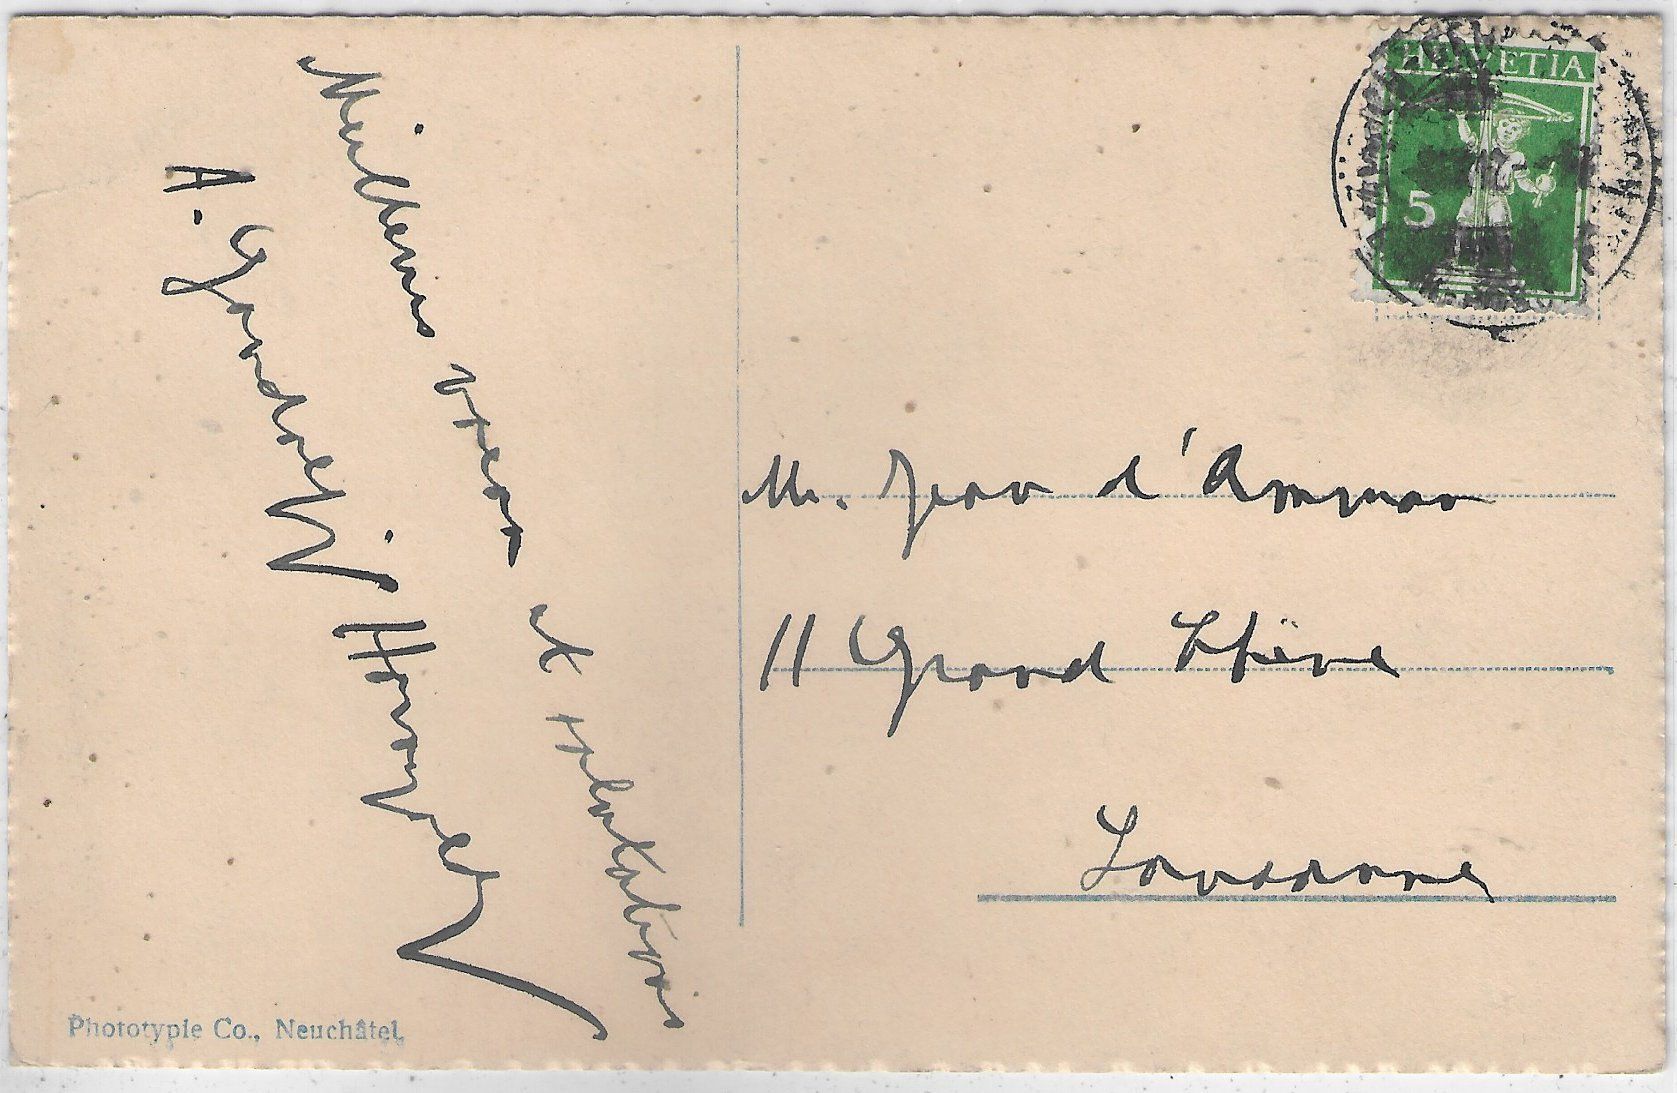 Meilleurs vœux et salutations
A. Gandolfi Hornyold
M. Jean d'Amman
11 Grand Chêne
Lausanne
HELVETIA
5
Phototypie Co., Neuchâtel